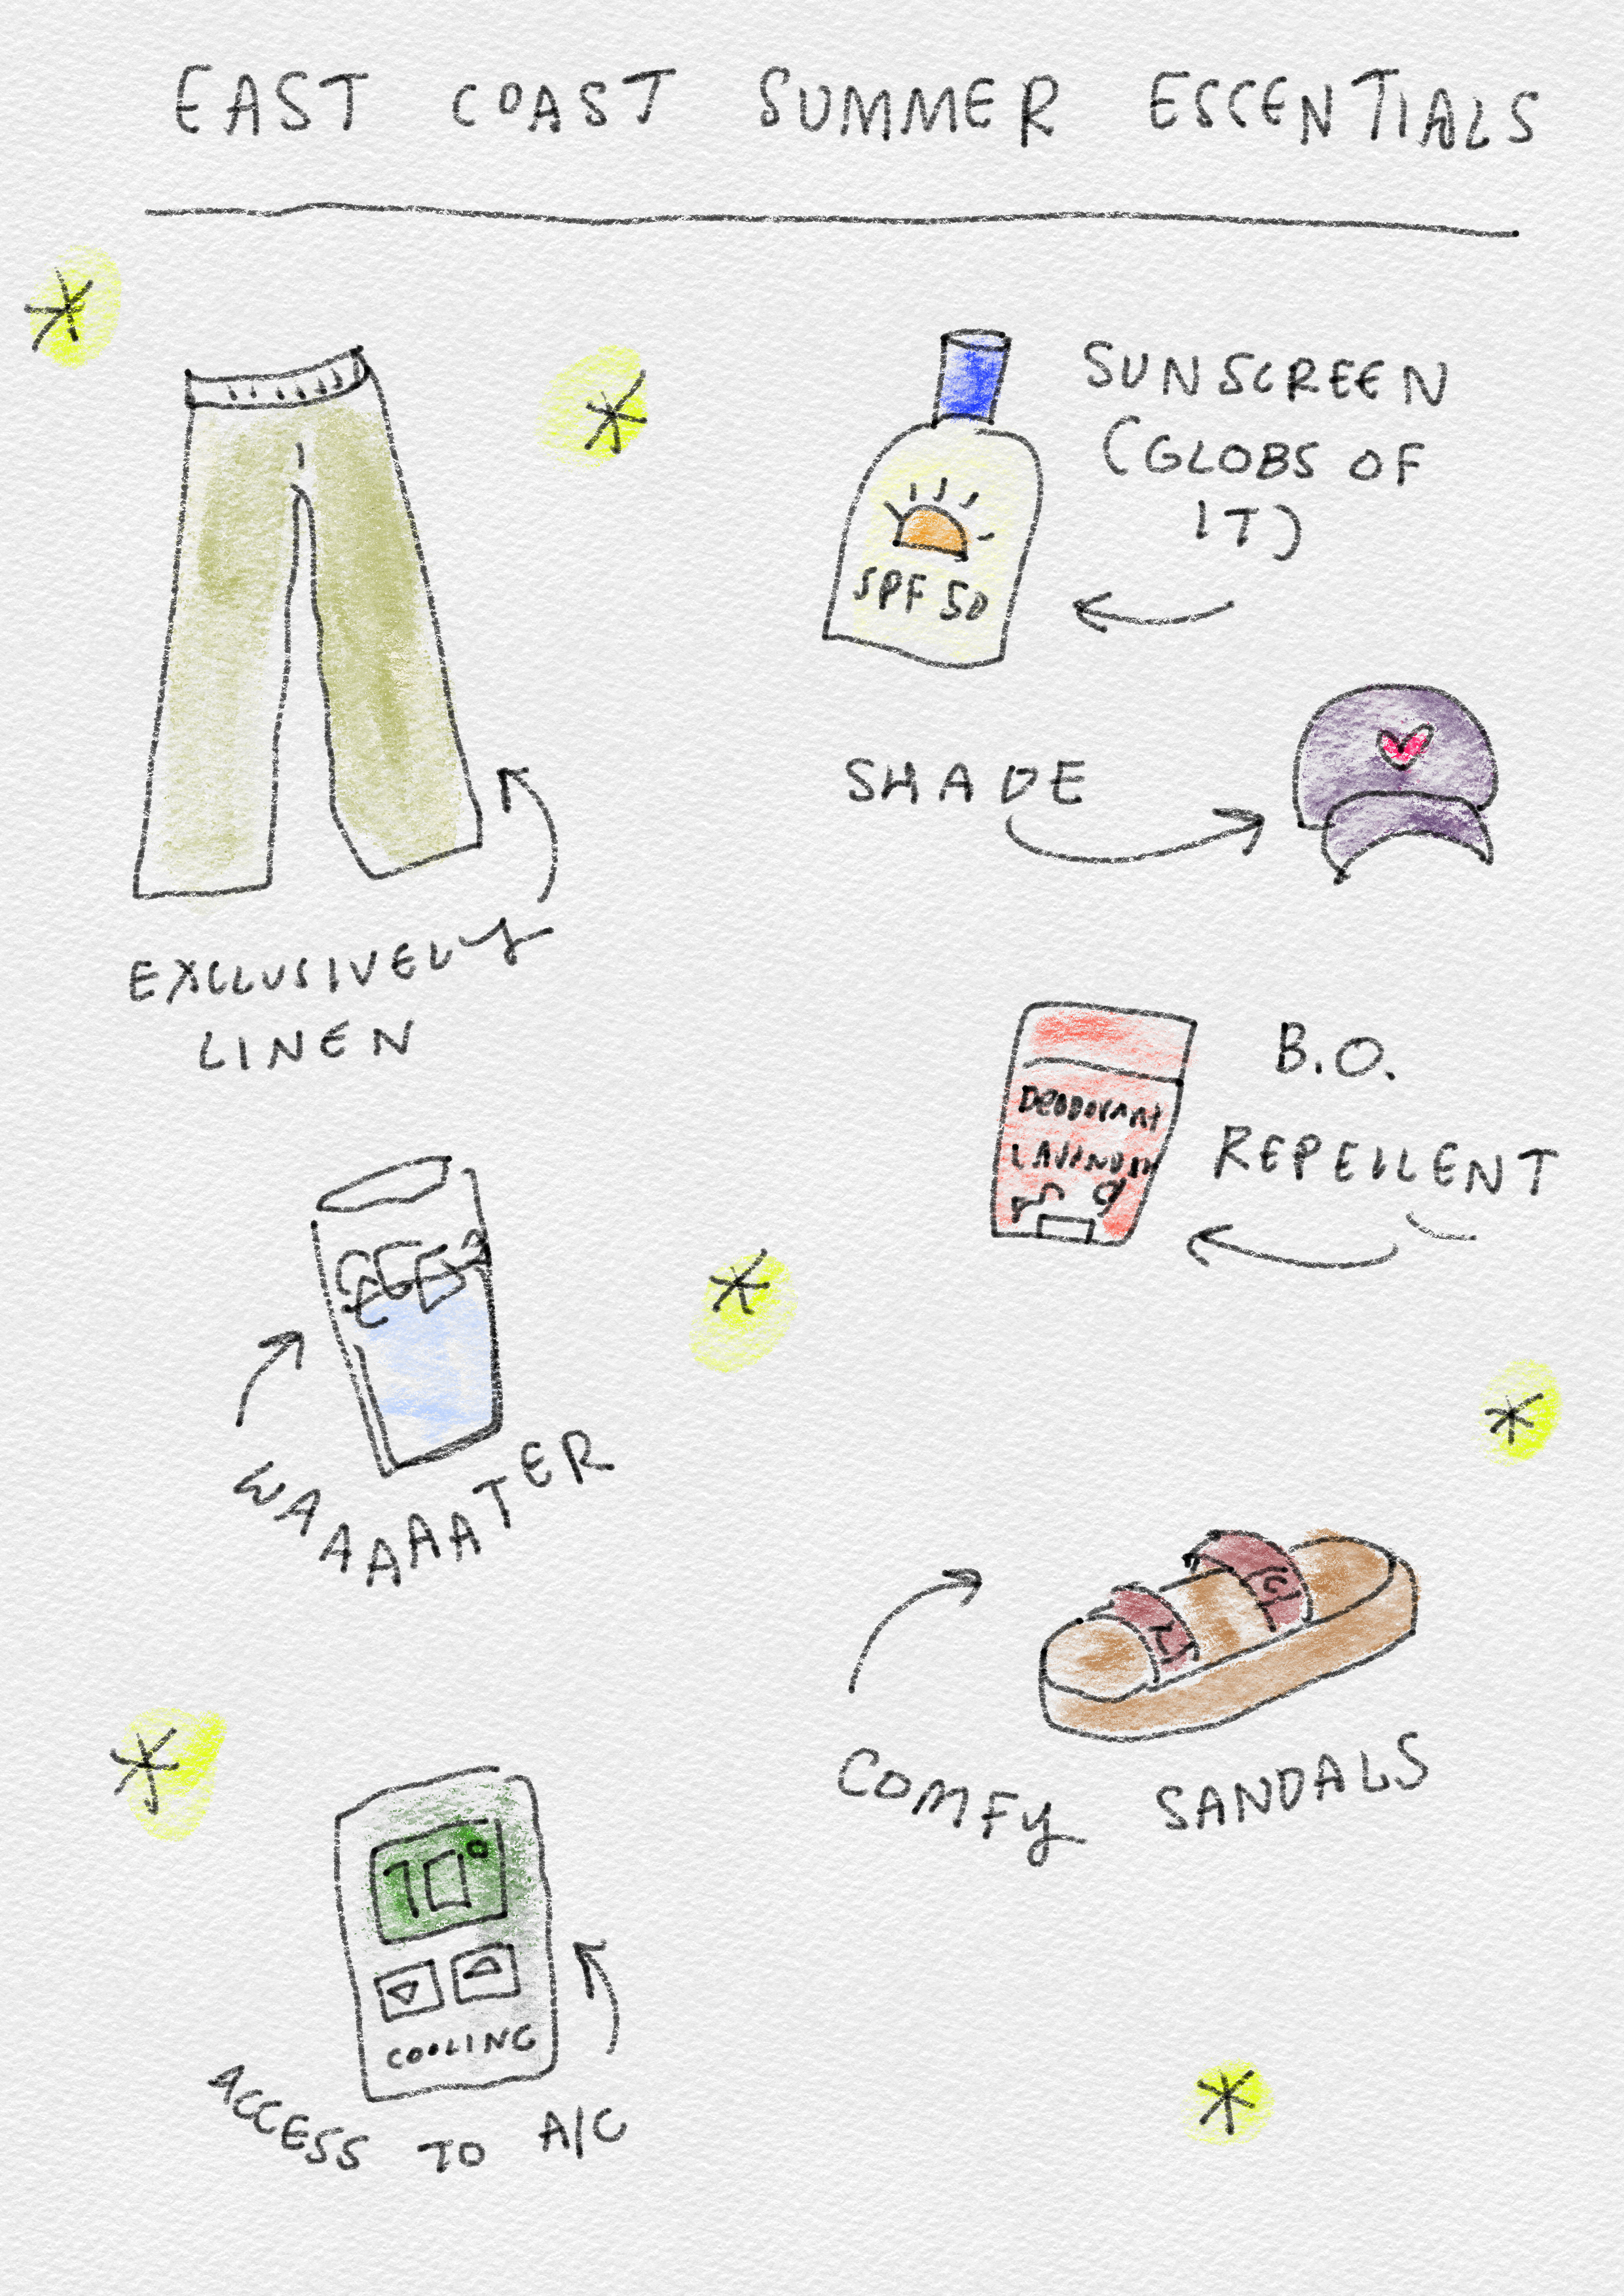 EAST COAST SUMMER ESCENTIALS
SUNSCREEN
(GLOBS OF
IT)
SPF 50
SHADE
EXCLUSIVELY
LINEN
B.O.
REPELLENT
DEODORANT
WAAAAATER
COMFY SANDALS
70°
COOLING
ACCESS TO A/C